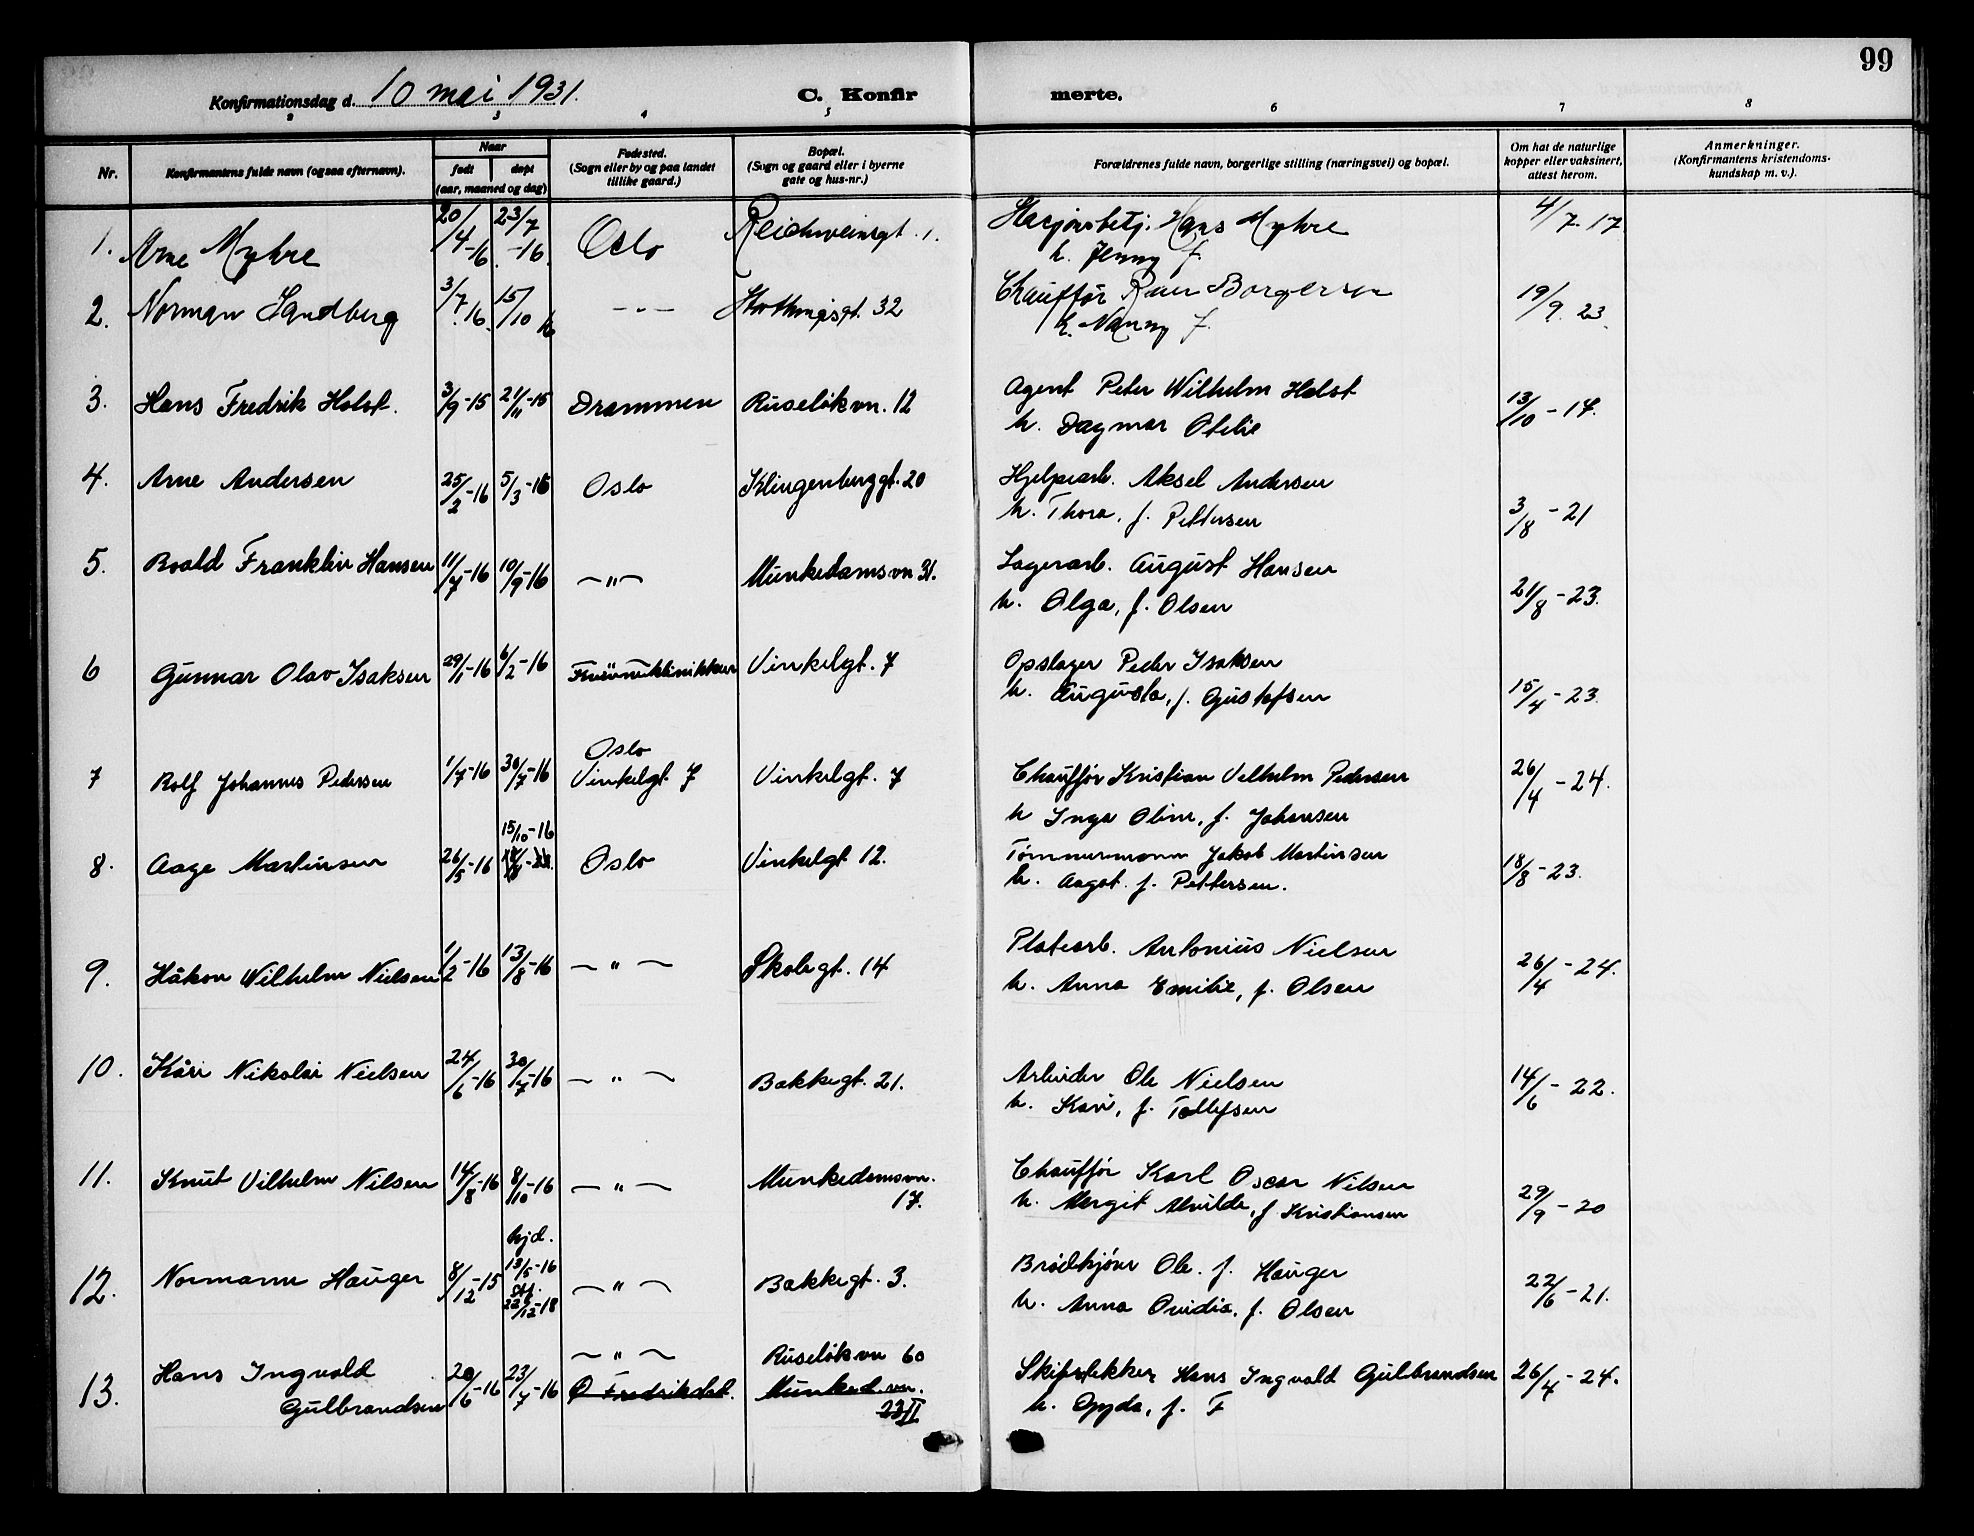 99
Konfirmationsdag d. 10 mai 1931. C. Konfirmerte.
2 3 4 5 6 7 8
Nr. Konfirmantens fulde navn (ogsaa efternavn). Naar født døpt (aar, maaned og dag) Fødested. (Sogn eller by og paa landet tillike gaard.) Bopæl. (Sogn og gaard eller i byerne gate og hus-nr.) Forældrenes fulde navn, borgerlige stilling (næringsvei) og bopæl. Om hat de naturlige kopper eller vaksinert, attest herom. Anmerkninger. (Konfirmantens kristendomskundskap m. v.).
1. Arne Myhre 20/4-16. 23/7-16. Oslo Reichweinsgt. 1. Hans Myhre 4/7. 17.
h. Jenny f.
2. Norman Sandberg 3/7. 16. 15/10 16 -"- Stortingsgt. 32 Chauffør Borgersen 19/9. 23.
h. Nanny f.
3. Hans Fredrik Holst. 3/9-15 21/11-15 Drammen Ruseløkvn. 12 Agent Peter Wilhelm Holst 13/10-17.
h. Dagmar Otelie
4. Arne Andersen 25/2-16 5/3-16 Oslo Klingenberggt. 20 Hjelpearb. Aksel Andersen
h. Thora, f. Pettersen 3/8-21
5. Roald Franklin Hansen 11/7-16 10/9-16 -"- Munkedamsvn 31. Lagerarb. August Hansen
h. Olga, f. Olsen 21/8-23.
6 Gunnar Olav Isaksen 29/1-16 6/2-16 Kvinneklinikken Vinkelgt. 7 Opslager Peder Isaksen
h. Augusta, f. Gustafsen 15/4-23.
Oslo
7 Rolf Johannes Pedersen 1/7-16 30/7-16 Vinkelgt. 7 Vinkelgt. 7 Chauffør Kristian Velhelm Pedersen 26/4-24.
h Inga Oline, f. Johansen
15/10-16
8. Aage Martinsen 26/5-16 Oslo Vinkelgt 12. Tømmermann Jakob Martinsen 18/8-23.
h. Aagot. f. Pettersen.
9. Håkon Wilhelm Nielsen 1/2-16 13/8-16 -"- Skolegt. 14 Platearb. Antonius Nielsen 26/4-24.
h. Anna Emilie, f. Olsen
10. Kåre Nikolai Nielsen 24/6-16 30/7-16 -"- Bakkegt. 21. Arbeider Ole Nielsen 14/6-22.
h. Kari, f. Tollefsen
11. Knut Vilhelm Nilsen 14/8-16 8/10-16 -"- Munkedamsvn. 17. Chauffør Karl Oscar Nilsen
h. Margit Alvilde, f Kristiansen 29/9-20
hjd.
12. Normann Hauger 8/12-15 13/5-16 stf. 22/12-18 -"- Bakkegt. 3. Brødkjører Ole. f. Hauger 22/6-21.
h. Anna Ovidia. f. Olsen
-"- Ruseløkvn 60
13. Hans Ingvald Gulbrandsen 20/6-16 23/7-16 Ø Fredrikstad. Munked.vn. 23 II Skipsdekker Hans Ingvald Gulbrandsen 26/4-24.
h. Gyda, f. F